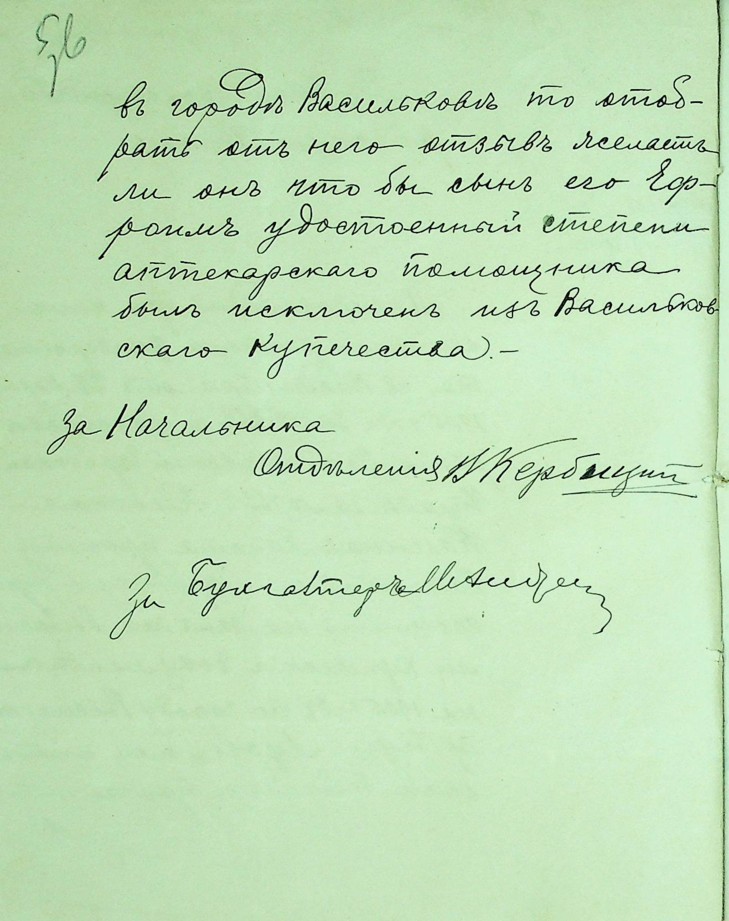 56
въ городѣ Васильковѣ то отоб-
рать отъ него отзывъ желаетъ
ли онъ что бы сынъ его Еф-
роимъ удостоенный степени
аптекарскаго помощника
былъ исключенъ изъ Васильков-
скаго купечества.-
за Начальника
Отдѣленія
За Бухгалтеръ